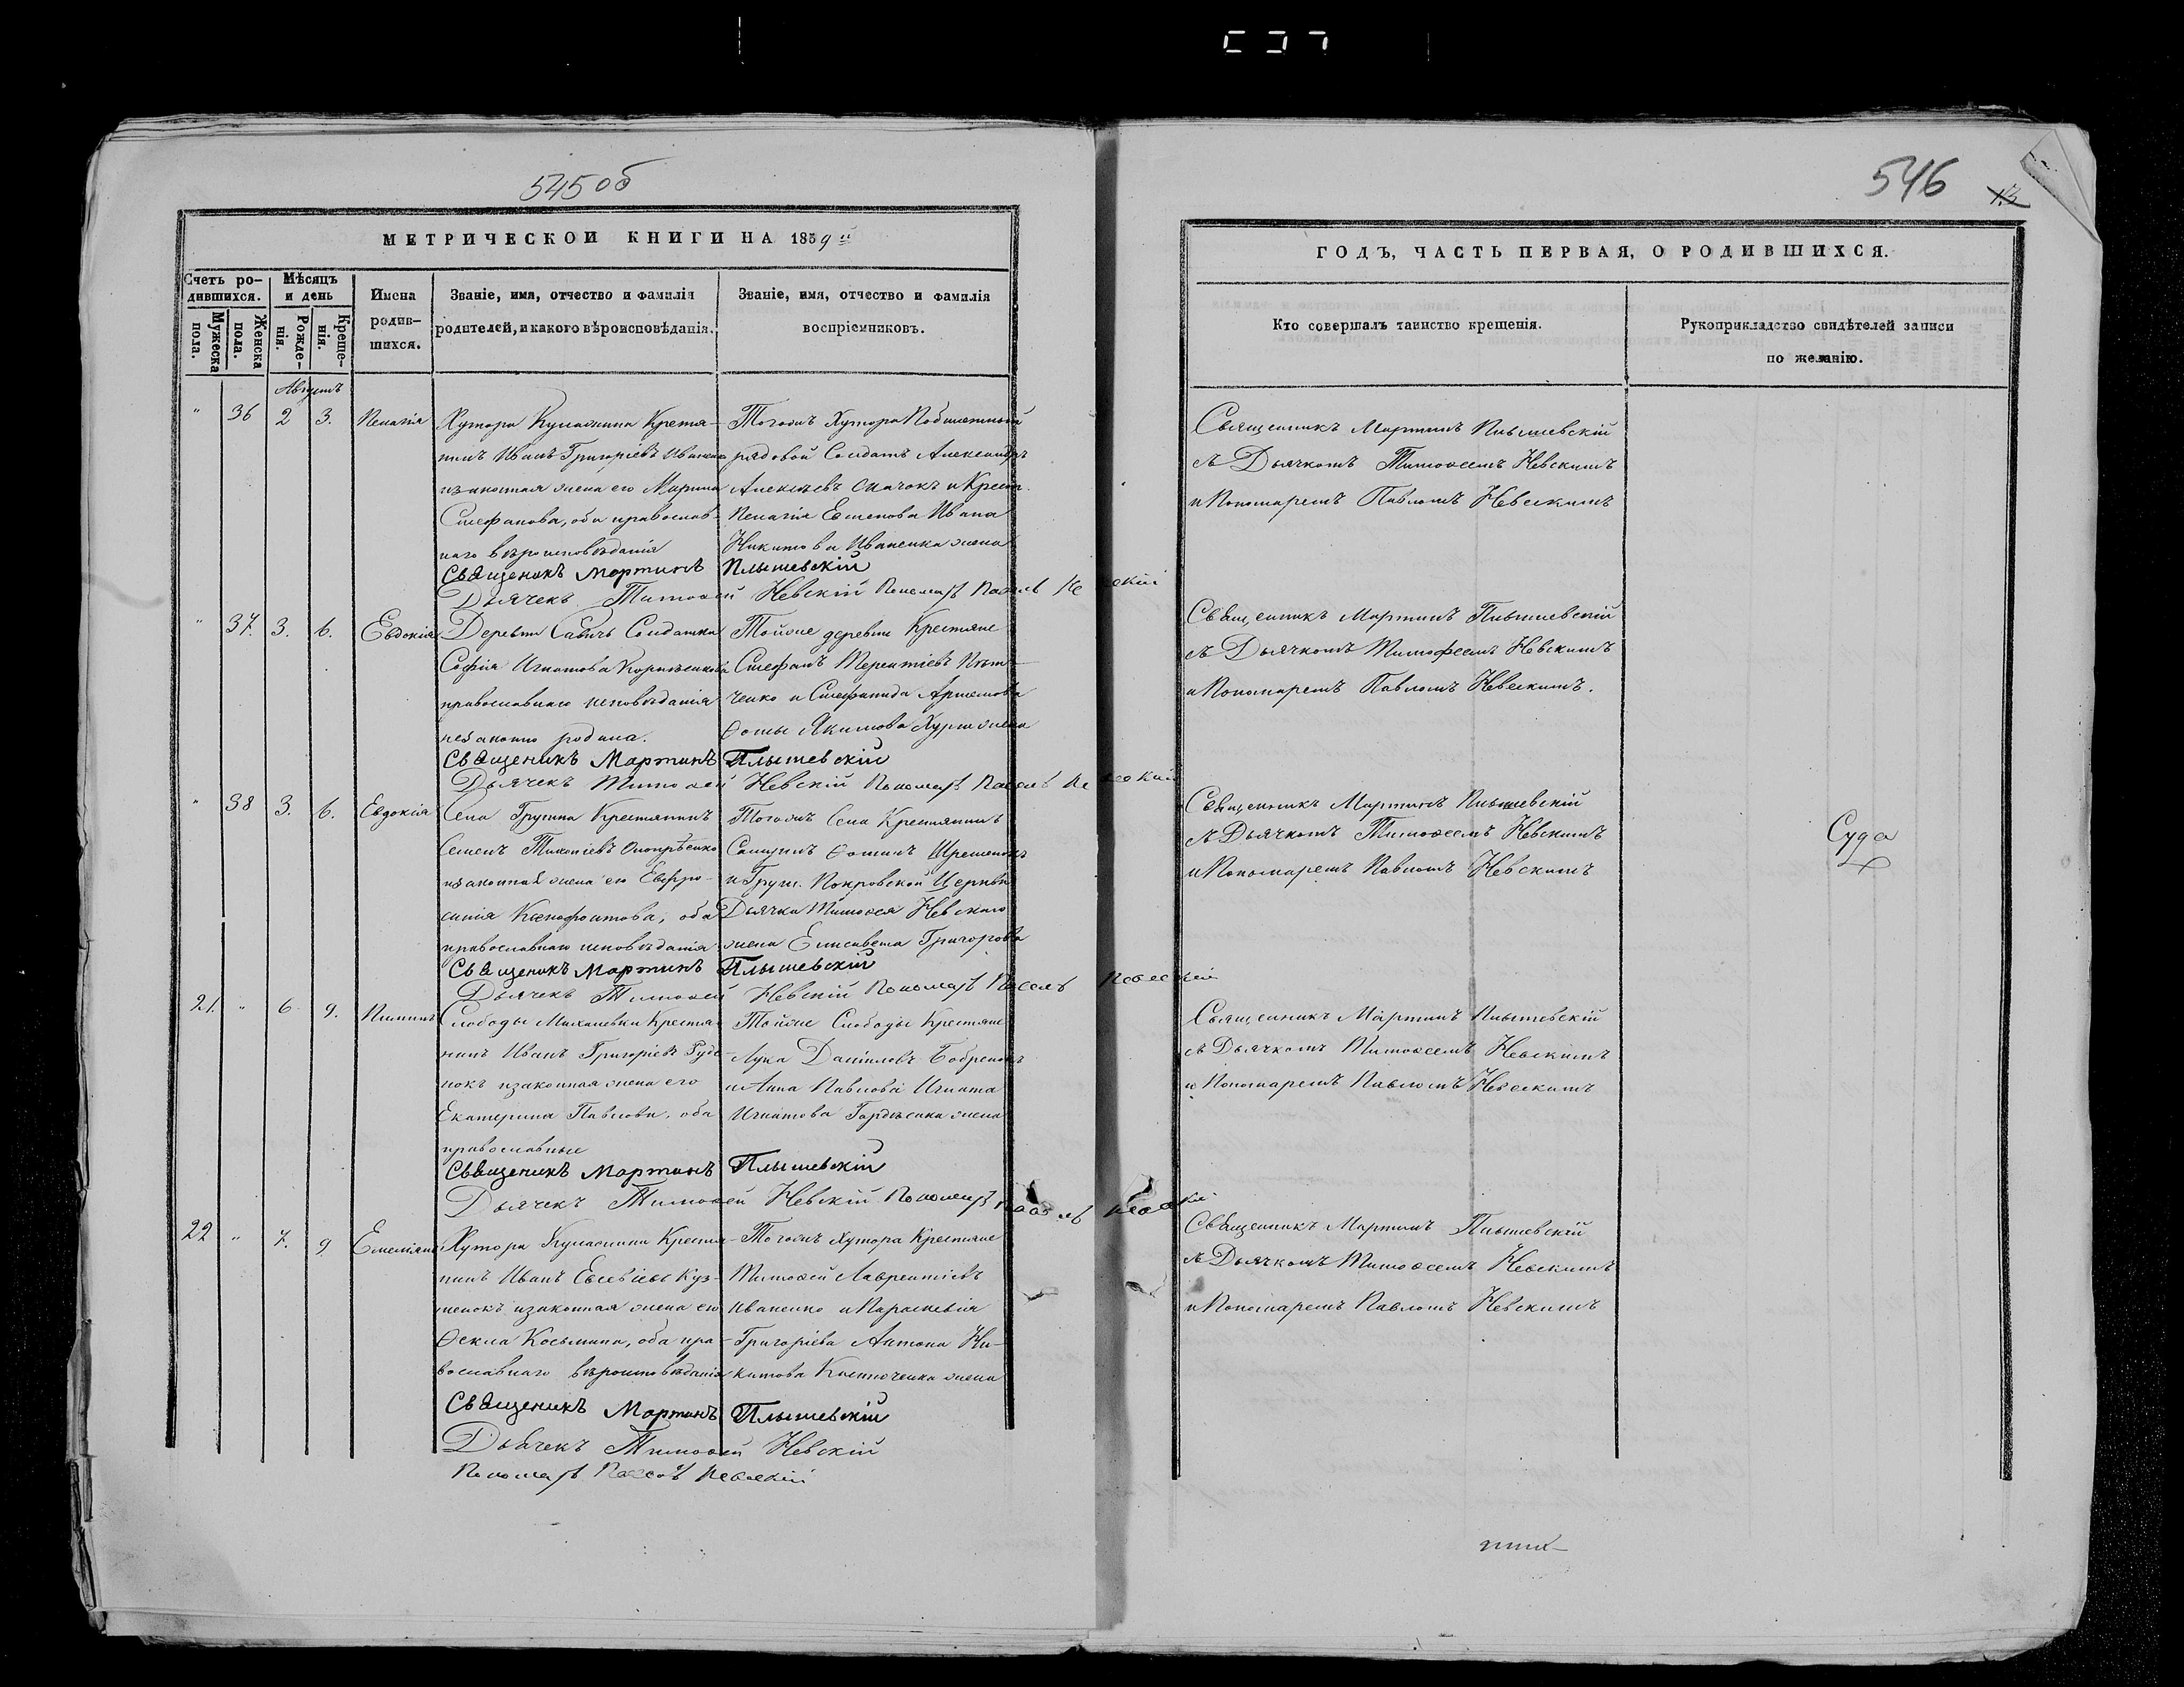 545 об
МЕТРИЧЕСКОЙ КНИГИ НА 1859й
Счетъ родившихся.
Мужеска пола.
Женска пола.
Мѣсяцъ и день
Рожденія.
Крещенія.
Имена родившихся.
Званіе, имя, отчество и фамилія
родителей, и какого вѣроисповѣданія.
Званіе, имя, отчество и фамилія
воспріемниковъ.
Августъ
" 36 2 3. Пелагія
Хутора Кулажина Крестья-
нинъ Иванъ Григоріевъ Иваненко
изаконная жена его Марина
Стефанова, оба православ-
наго вѣроисповѣданія
Тогожъ Хутора
рядовой Солдатъ Александръ
Алексѣевъ и Крест.
Пелагія Ивана
Никитова Иваненка жена
Священикъ Мартинъ Плышевскій
Дьячекъ Тимоѳей Невскій Пономарь Павелъ Невскій
" 37. 3. 6. Евдокія
Деревни Савичъ Солдатка
Софія Игнатова
православнаго исповѣданія
незаконно родила.
Тойже деревни Крестьяне
Стефанъ Терентіевъ
и Стефанида Артемова
Ѳомы Якимова жена
Священикъ Мартинъ Плышевскій
Дьячекъ Тимоѳей Невскій Пономарь Павелъ Невскій
" 38 3. 6. Евдокія
Села Крестьянинъ
Семенъ
изаконная жена его Евфро-
синія Ксенофонтова, оба
православнаго исповѣданія
Тогожъ Села Крестьянинъ
Ѳоминъ
Покровской Церкви
Дьячка Тимоѳея Невскаго
жена Елисавета Григорова
Священикъ Мартинъ Плышевскій
Дьячекъ Тимоѳей Невскій Пономарь Павелъ Невскій
21. " 6 9. Пиминъ
Слободы Крестья-
нинъ Иванъ Григоріевъ Руде-
нокъ изаконная жена его
Екатерина Павлова, оба
православные
Тойже Слободы Крестьяне
Лука Даніиловъ Бобренокъ
и Анна Павлова Игната
Игнатова Гордѣенка жена
Священикъ Мартинъ Плышевскій
Дьячекъ Тимоѳей Невскій Пономарь Павелъ Невскій
22 " 7. 9 Емеліянъ
Хутора Кулажина Крестья-
нинъ Иванъ Евсевіевъ Куз-
менокъ изаконная жена его
Ѳекла Косьмина, оба пра-
вославнаго вѣроисповѣданія
Тогожъ Хутора Крестьяне
Тимоѳей Лаврентіевъ
Иваненко и Параскевія
Григоріева Антона Ни-
китова жена
Священикъ Мартинъ Плышевскій
Дьячекъ Тимоѳей Невскій
Пономарь Павелъ Невскій
546
ГОДЪ, ЧАСТЬ ПЕРВАЯ, О РОДИВШИХСЯ.
Кто совершалъ таинство крещенія.
Рукоприкладство свидѣтелей записи
по желанію.
Священникъ Мартинъ Плышевскій
съ Дьячкомъ Тимоѳеемъ Невскимъ
и Пономаремъ Павломъ Невскимъ
Священникъ Мартинъ Плышевскій
съ Дьячкомъ Тимофеемъ Невскимъ
и Пономаремъ Павломъ Невскимъ.
Священникъ Мартинъ Плышевскій
съ Дьячкомъ Тимоѳеемъ Невскимъ
и Пономаремъ Павломъ Невскимъ
Суда
Священникъ Мартинъ Плышевскій
съ Дьячкомъ Тимоѳеемъ Невскимъ
и Пономаремъ Павломъ Невскимъ
Священникъ Мартинъ Плышевскій
съ Дьячкомъ Тимоѳеемъ Невскимъ
и Пономаремъ Павломъ Невскимъ